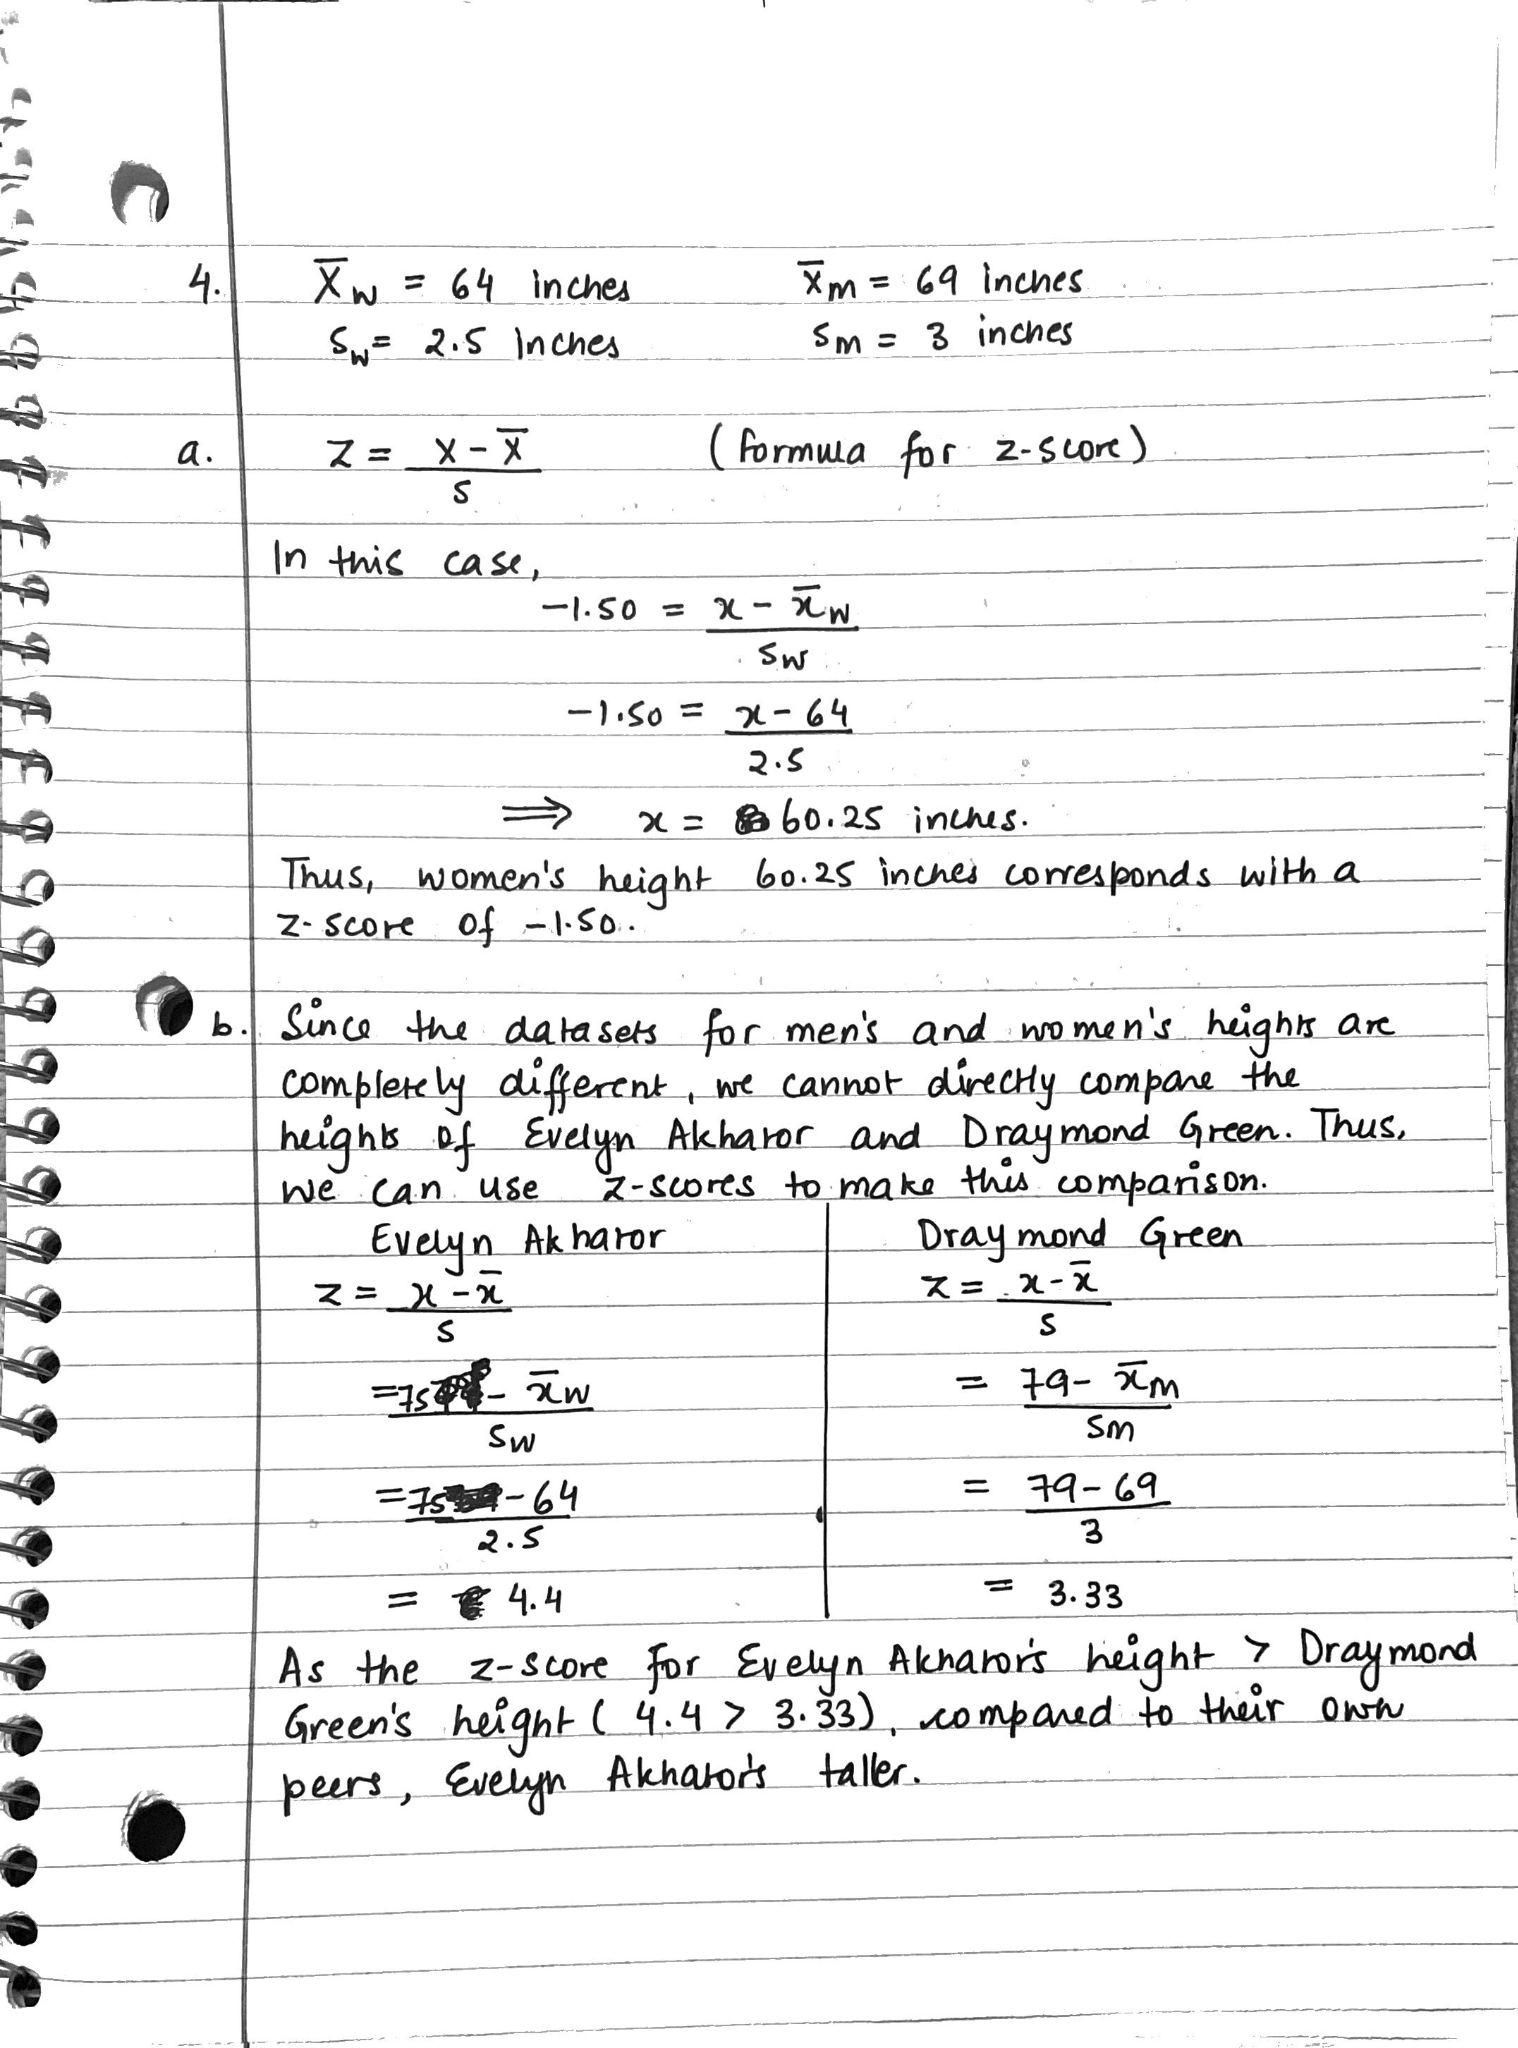 4. X̄w = 64 inches x̄m = 69 inches
Sw = 2.5 inches Sm = 3 inches
a. Z = X - X̄ (formula for z-score)
S
In this case,
-1.50 = x - x̄w
Sw
-1.50 = x - 64
2.5
⟹ x = 60.25 inches.
Thus, women's height 60.25 inches corresponds with a
z-score of -1.50.
b. Since the datasets for men's and women's heights are
completely different, we cannot directly compare the
heights of Evelyn Akhator and Draymond Green. Thus,
we can use z-scores to make this comparison.
Evelyn Akhator Draymond Green
z = x - x̄ z = x - x̄
S S
= 75 - x̄w = 79 - x̄m
Sw Sm
= 75 - 64 = 79 - 69
2.5 3
= 4.4 = 3.33
As the z-score for Evelyn Akhator's height > Draymond
Green's height ( 4.4 > 3.33), compared to their own
peers, Evelyn Akhator's taller.